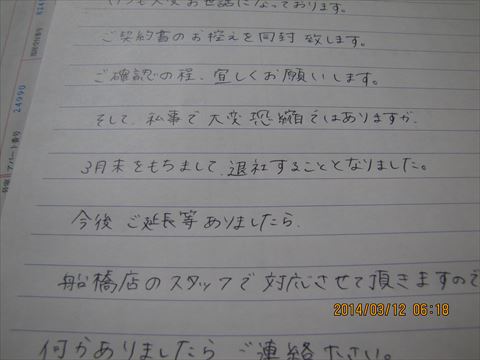 いつも大変お世話になっております。
ご契約書のお控えを同封致します。
ご確認の程、宜しくお願いします。
そして、私事で大変恐縮ではありますが、
3月末をもちまして、退社することとなりました。
今後ご延長等ありましたら、
船橋店のスタッフで対応させて頂きますので
何かありましたらご連絡ください。
24990
アパート番号
2014/03/12 06:18